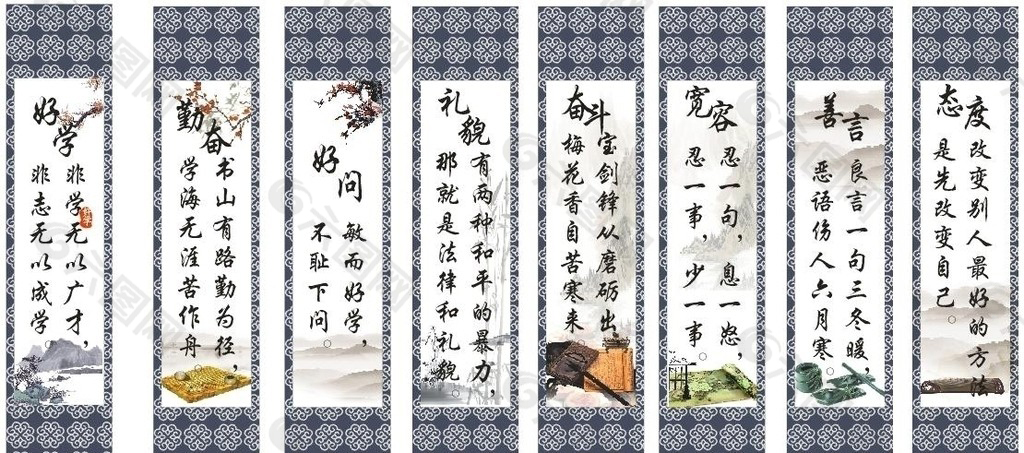 好学
非学无以广才，
非志无以成学。
勤奋
书山有路勤为径，
学海无涯苦作舟。
好问
敏而好学，
不耻下问。
礼貌
有两种和平的暴力，
那就是法律和礼貌。
奋斗
宝剑锋从磨砺出，
梅花香自苦寒来。
宽容
忍一句，息一怒，
忍一事，少一事。
善言
良言一句三冬暖，
恶语伤人六月寒。
态度
改变别人最好的方法
是先改变自己。
六图网